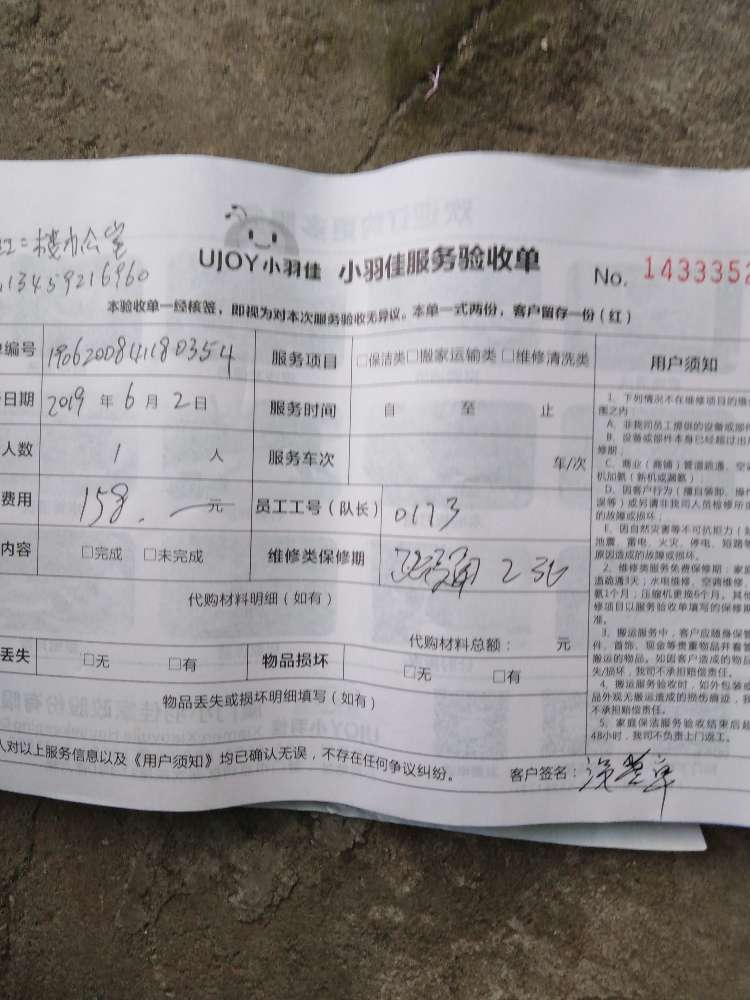 二楼办公室
13459216960
UJOY小羽佳 小羽佳服务验收单 No. 1433352
本验收单一经核签，即视为对本次服务验收无异议。本单一式两份，客户留存一份（红）
编号 1906200841180354 服务项目 □保洁类□搬家运输类 □维修清洗类 用户须知
日期 2019 年 6 月 2 日 服务时间 自 至 止
人数 1 人 服务车次 车/次
费用 158. 元 员工工号（队长） 0173
内容 □完成 □未完成 维修类保修期
代购材料明细（如有）
代购材料总额： 元
丢失 □无 □有 物品损坏 □无 □有
物品丢失或损坏明细填写（如有）
人对以上服务信息以及《用户须知》均已确认无误，不存在任何争议纠纷。 客户签名：
1、下列情况不在维修项目的维
围之内：
A、非我司员工提供的设备或部件
B、设备或部件本身已经超过出
修期；
C、商业（商铺）管道疏通、空
机加氨（新机或漏氨）
D、因客户行为（擅自装卸、操
误等）或另请非我司人员检修所
的故障或损坏；
E、因自然灾害等不可抗拒力（
地震、雷电、火灾、停电、短路等
原因造成的故障或损坏。
2、维修类服务免费保修期：家庭
道疏通3天；水电维修、空调维修、
氨1个月；压缩机更换6个月。其他
修项目以服务验收单填写的保修期
准。
3、搬运服务中，客户应随身保
件、首饰、现金等贵重物品并看管
搬运的物品。如因客户造成的物品
失/损坏，我司不承担赔偿责任。
4、搬运服务验收时，如外包装或
品外观无搬运造成的损伤痕迹，我
不承担赔偿责任。
5、家庭保洁服务验收结束后超
48小时，我司不负责上门返工。